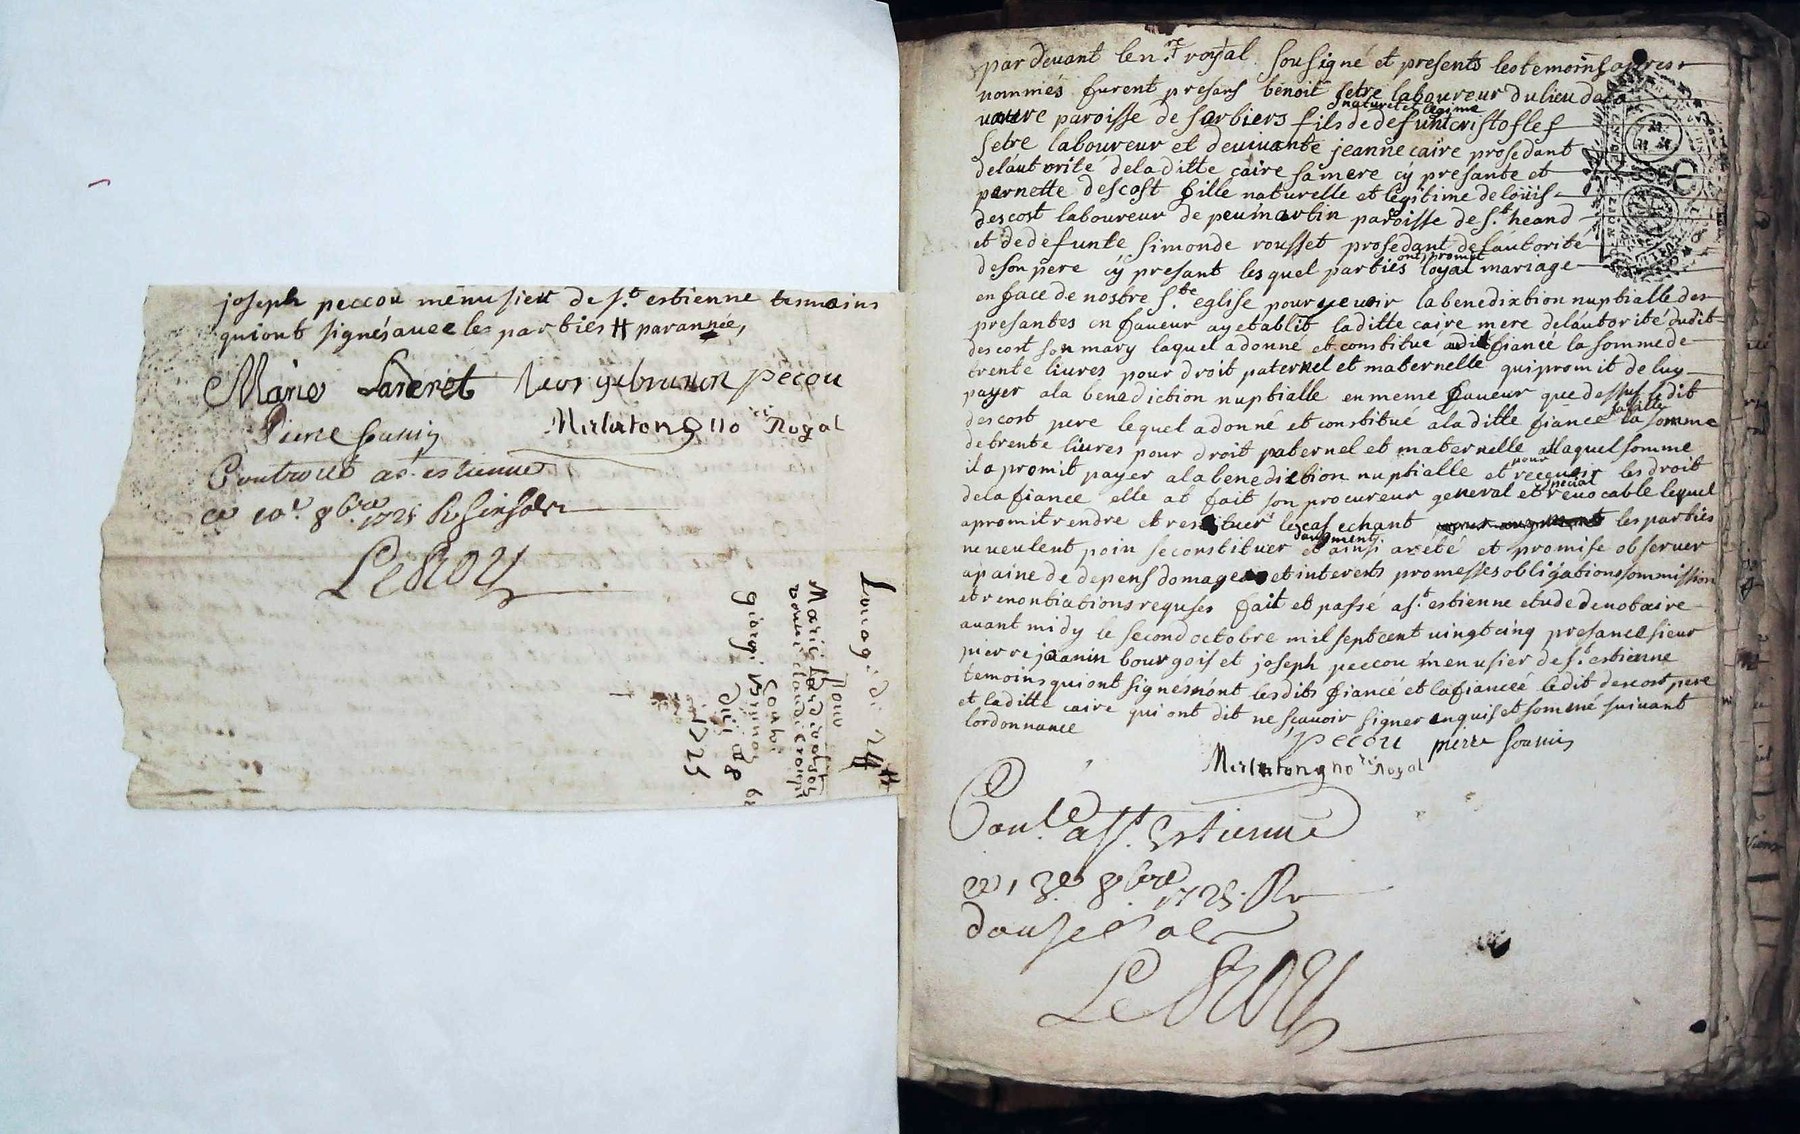 joseph peccou menusieu de s.t estienne temoins
qui ont signés avec les parties # par année,
Marie Larderet pecou
Pierre Royal
Controllé a s. estienne
ce 10.e 8bre 1725
LeROY
Louage di 24#
pour
Marie
1725
par devant le n.re royal sousigné et presents les temoins apres
nommés furent presans benoit setre laboureur du lieu de la
paroisse de sorbiers fils naturel et legitime de defunt cristofles
setre laboureur et de vivante jeanne caire prosedant
de l'autorité de la ditte caire sa mere cy presante et
pernette descost fille naturelle et legitime de loüis
descost laboureur de peumartin paroisse de s.t heand
et de defunte simonde rousset prosedant de l'autorite
de son pere cy presant lesquel parties ont promit loyal mariage
en face de nostre s.te eglise pour recevoir la benediction nuptialle des
presantes en faveur ay etablit la ditte caire mere de l'autorité du dit
descost son mary laquel a donné et constitué audit fiancé la somme de
trente livres pour droit paternel et maternelle qui promit de luy
payer a la benediction nuptialle en meme faveur que dessus ledit
descost pere lequel a donné et constitué a la ditte fiancé sa fille la somme
de trente livres pour droit paternel et maternelle laquel somme
il a promit payer a la benediction nuptialle et pour recevoir les droit
de la fiancé elle at fait son procureur general et special revocable lequel
a promit rendre et restituer le cas echant les parties
ne veulent poin se constituer d'augment et ainsi areté et promise observer
a paine de depens domages et interets promesses obligations sommission
et renontiations requses fait et passé a s.t estienne etude de notaire
avant midy le second octobre mil sept cent vingt cinq presance sieur
pierre joanin bourgois et joseph peccou menusier de s.t estienne
temoins qui ont signes non lesdits fiancé et la fianceé ledit descost pere
et la ditte caire qui ont dit ne sçavoir signer enquis et sommé suivant
lordonnance
pecou pierre
Royal
Con.lé a s.t Estienne
ce 13e 8bre 1725. R
douse sol
LeROY